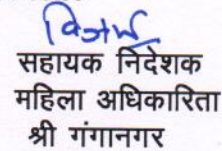 सहायक निदेशक
महिला अधिकारिता
श्री गंगानगर